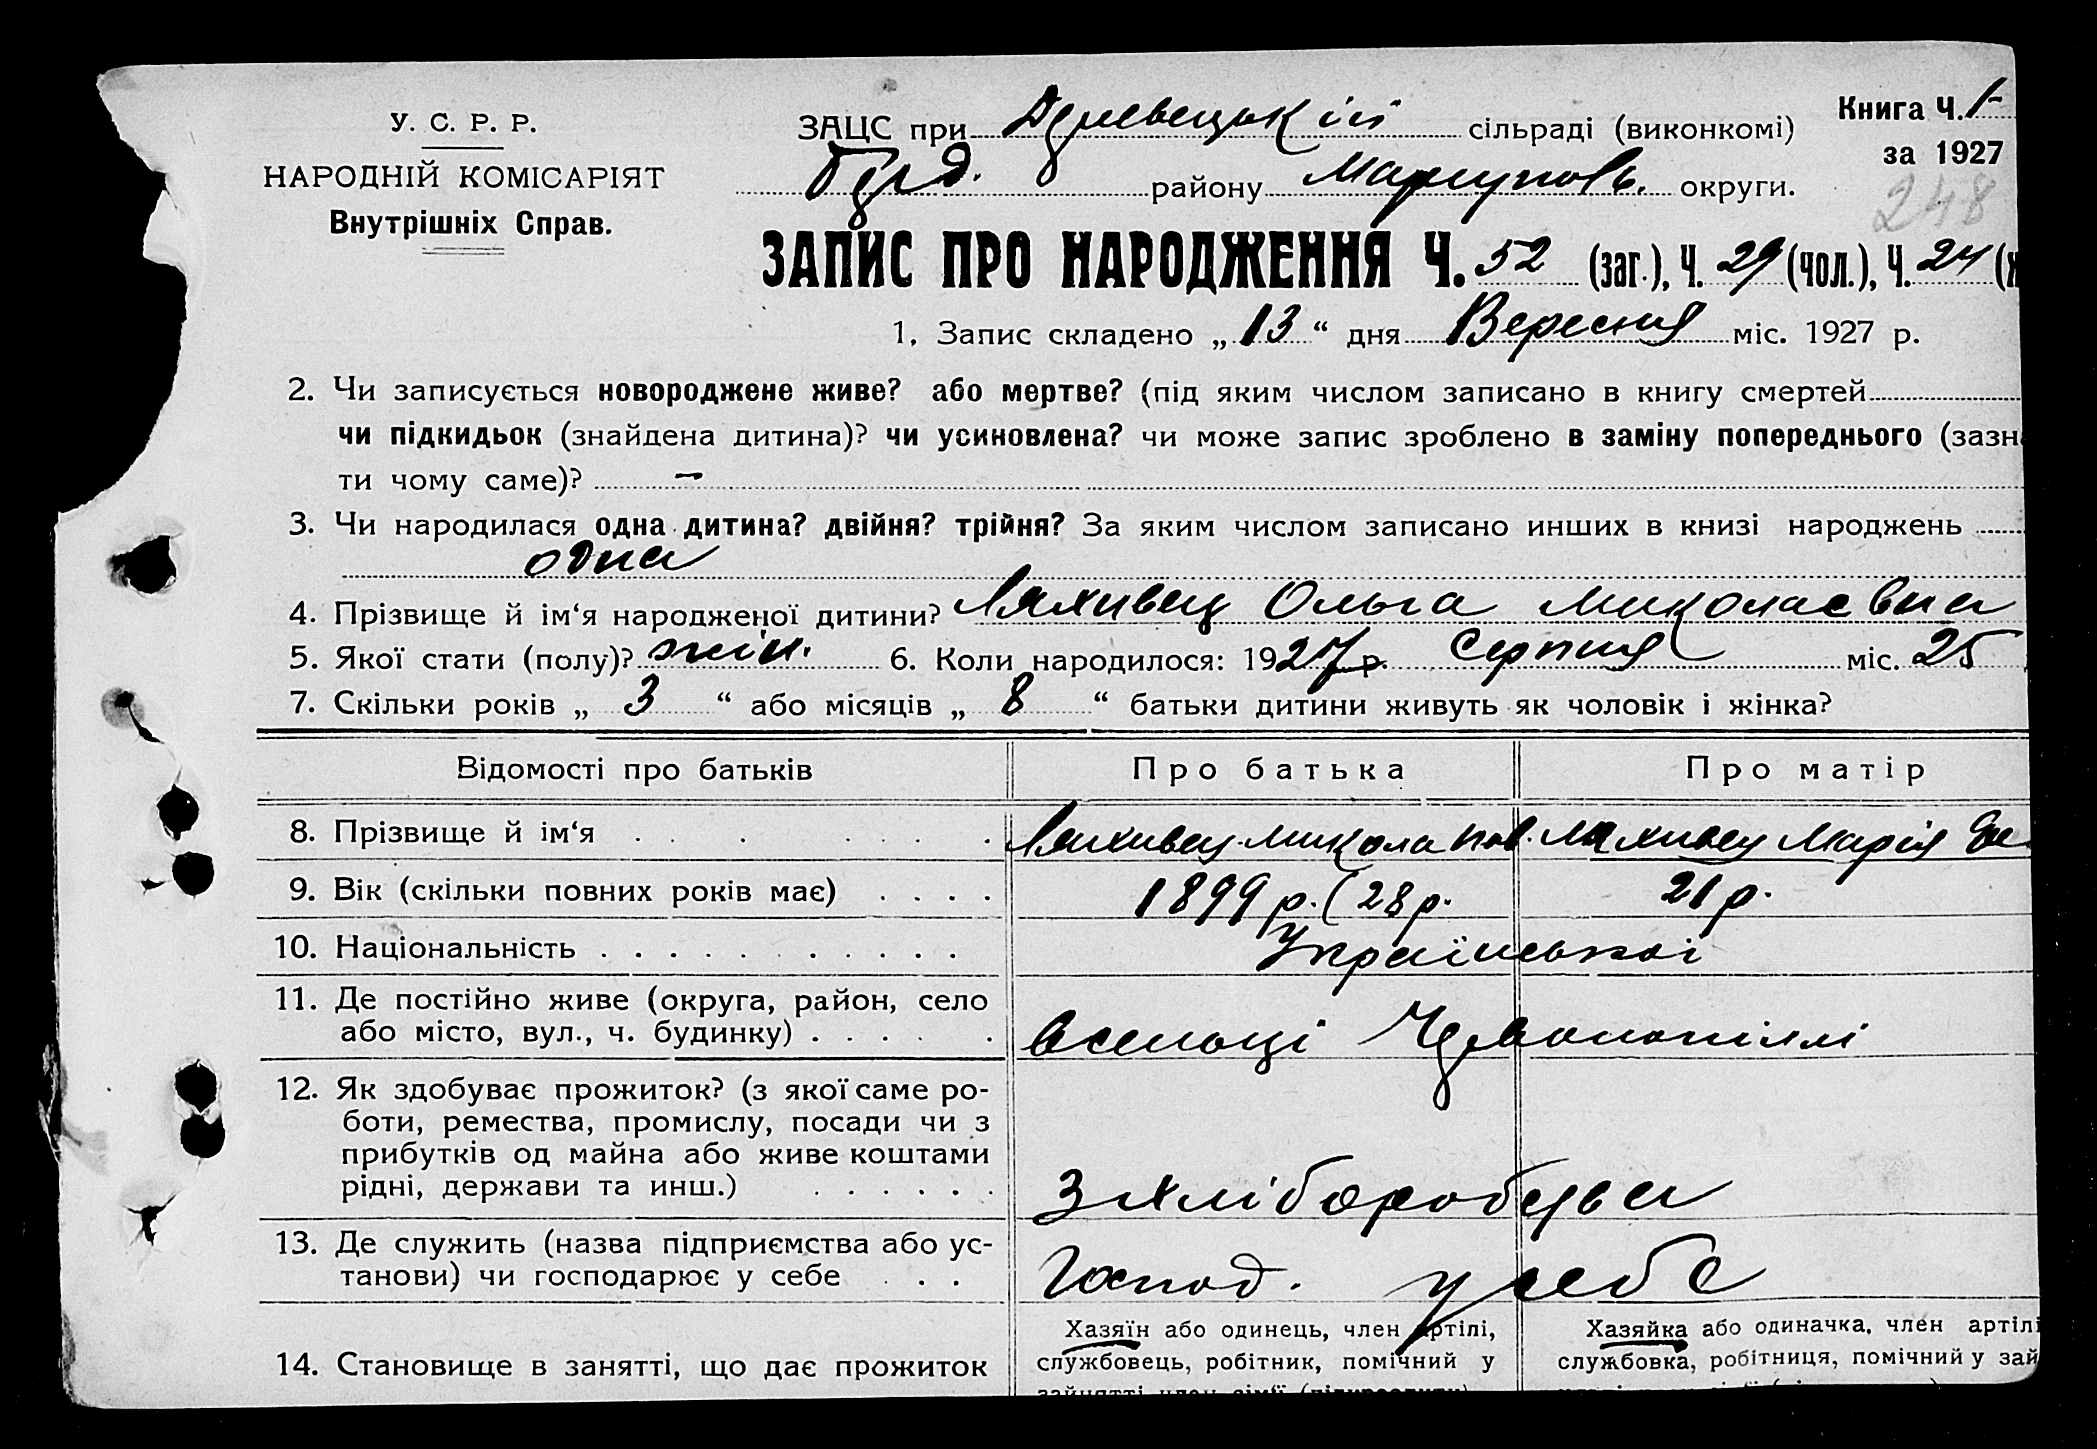 У. С. Р. Р.
НАРОДНІЙ КОМІСАРІЯТ
Внутрішніх Справ.
ЗАЦС при сільраді (виконкомі)
Книга Ч. 1
району Маріуполь. округи.
за 1927
248
ЗАПИС ПРО НАРОДЖЕННЯ Ч. 52 (заг.), Ч. 29 (чол.), Ч. 24 (ж
1. Запис складено „ 13 “ дня Вересня міс. 1927 р.
2. Чи записується новороджене живе? або мертве? (під яким числом записано в книгу смертей
чи підкидьок (знайдена дитина)? чи усиновлена? чи може запис зроблено в заміну попереднього (зазн
ти чому саме)? –
3. Чи народилася одна дитина? двійня? трійня? За яким числом записано инших в книзі народжень
одна
4. Прізвище й ім‘я народженої дитини? Ляхивец Ольга Миколаевна
5. Якої стати (полу)? жін. 6. Коли народилося: 1927 р. Серпня міс. 25
7. Скільки років „ 3 “ або місяців „ 8 “ батьки дитини живуть як чоловік і жінка?
Відомості про батьків Про батька Про матір
8. Прізвище й ім‘я . . . . . . Ляхивец Микола Пав. Ляхивец Марія
9. Вік (скільки повних років має) . . . . 1899 р. (28 р. 21 р.
10. Національність . . . . . . . . . . Української
11. Де постійно живе (округа, район, село
або місто, вул., ч. будинку) . . . . . в селищі
12. Як здобуває прожиток? (з якої саме ро-
боти, ремества, промислу, посади чи з
прибутків од майна або живе коштами
рідні, держави та инш.) . . . . . . З хліборобства
13. Де служить (назва підприємства або ус-
танови) чи господарює у себе . . . Господ. у себе
Хазяїн або одинець, член артілі, Хазяйка або одиначка, член артілі
14. Становище в занятті, що дає прожиток службовець, робітник, помічний у службовка, робітниця, помічний у зай